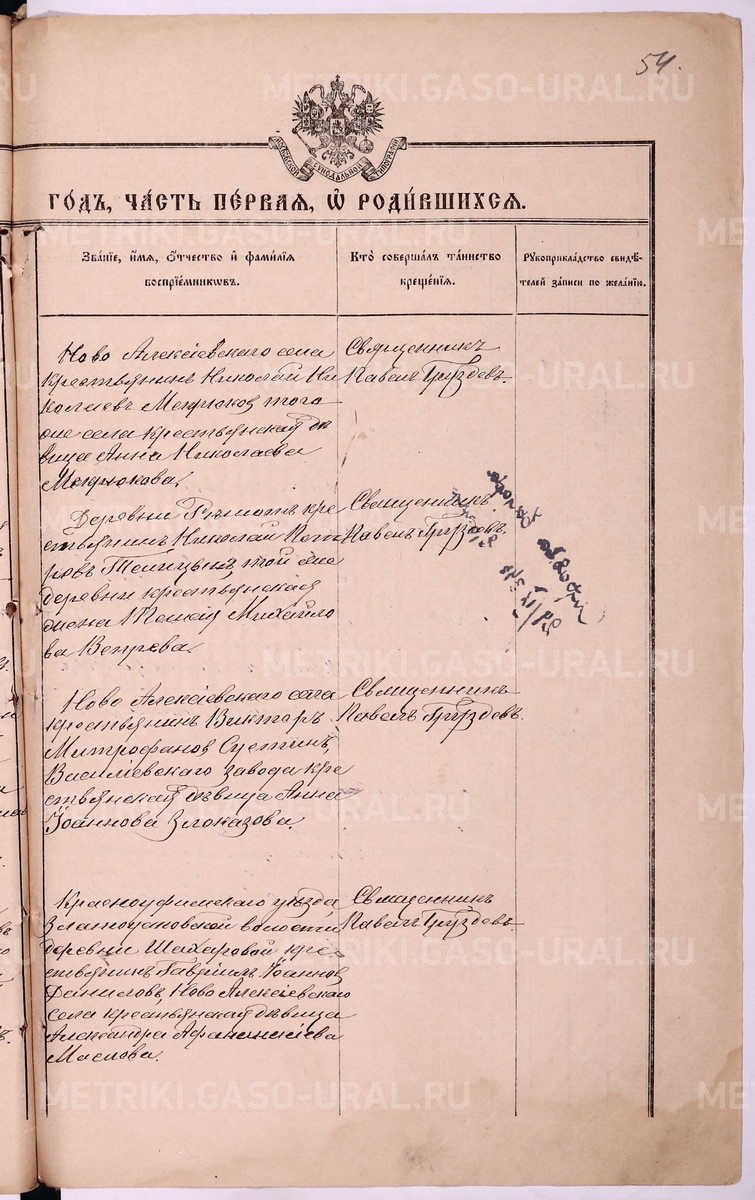 54.
МОСКОВСКОЙ СѴНОДАЛЬНОЙ ТИПОГРАФІИ
ГО́ДЪ, ЧА́СТЬ ПЕ́РВАЯ, Ѡ҆ РОДИ́ВШИХСЯ.
Зва́нїе, и҆́мя, ѻ҆́тчество и҆ фамѝлїя
воспрїе́мникѡвъ.
Кто̀ соверша́лъ та́инство
креще́нїя.
Рꙋкоприкла́дство свидѣ́-
телей за́писи по жела́нїю.
Ново Алексіевскаго села
крестьянинъ Николай Ни
колаевъ Мекрюков того
же села крестьянская дѣ
вица Анна Николаева
Мекрюкова.
Священникъ
Павелъ Груздевъ.
Деревни кре
стьянинъ Николай
той же
деревни крестьянская
жена Михайло
ва Вепрева.
Священникъ
Павелъ Груздевъ.
Ново Алексіевскаго села
крестьянинъ Викторъ
Митрофанов Сустинъ,
Василіевскаго завода кре
стьянская дѣвица Анна
Іоаннова Злоказова.
Священникъ
Павелъ Груздевъ.
Красноуфимскаго уѣзда
Златоустовской волости
деревни Шахаровой кре-
стьянинъ Гавріилъ Іоаннов
Даниловъ, Ново Алексіевскаго
села крестьянская дѣвица
Александра Афанасіева
Маслова.
Священникъ
Павелъ Груздевъ.
METRIKI.GASO-URAL.RU